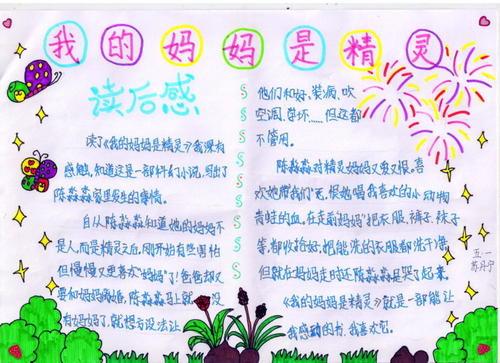 我的妈妈是精灵
读后感
读了《我的妈妈是精灵》我深有
感触,知道这是一部科幻小说,写出了
陈淼淼家里发生的事情。
自从陈淼淼知道她的妈妈不
是人,而是精灵之后,刚开始有些害怕
但慢慢又更喜欢“妈妈”了!爸爸却又
要和妈妈离婚,陈淼淼马上就
没
有妈妈了,就想方设法让
他们和好,装病、吹
空调、学坏……但这都
不管用。
陈淼淼对精灵妈妈又爱又恨。喜
欢她带我们飞,恨她喝我喜欢的小动物
青蛙的血。在走前“妈妈”把衣服、裤子、袜子
等,都收拾好,把能洗的衣服都洗干净
但就在妈妈走时还陈淼淼是哭了起来。
《我的妈妈是精灵》就是一部能让
我感动的书,我喜欢它。
五·一
苏丹宁